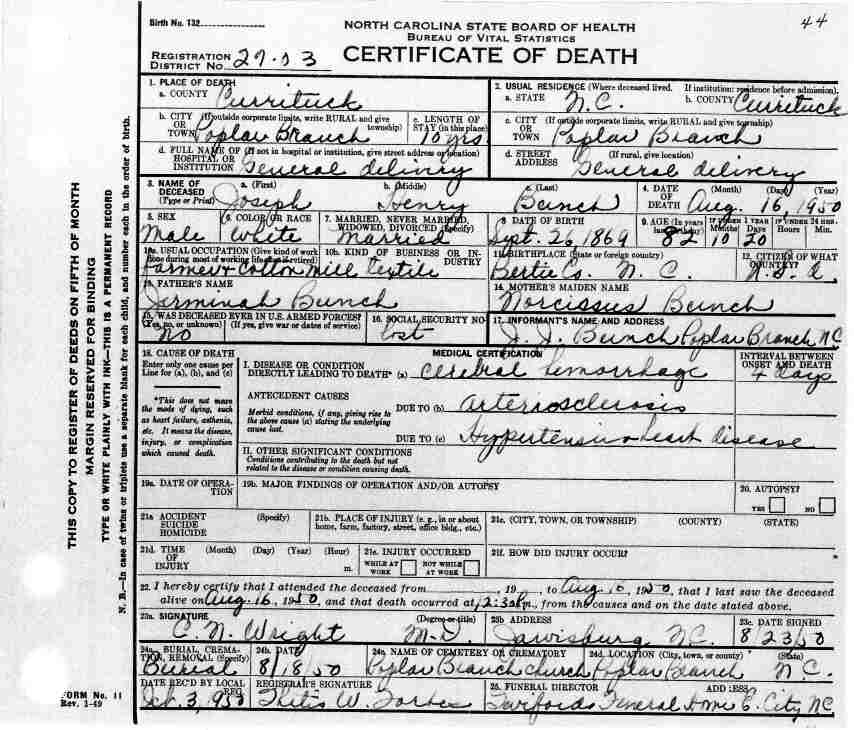 44
Birth No. 132
NORTH CAROLINA STATE BOARD OF HEALTH
BUREAU OF VITAL STATISTICS
CERTIFICATE OF DEATH
REGISTRATION DISTRICT No. 27-03
1. PLACE OF DEATH
a. COUNTY Currituck
2. USUAL RESIDENCE (Where deceased lived. If institution: residence before admission).
a. STATE N.C. b. COUNTY Currituck
b. CITY OR TOWN (If outside corporate limits, write RURAL and give township) Poplar Branch
c. LENGTH OF STAY (in this place) 10 yrs
c. CITY OR TOWN (If outside corporate limits, write RURAL and give township) Poplar Branch
d. FULL NAME OF HOSPITAL OR INSTITUTION (If not in hospital or institution, give street address or location) General delivery
d. STREET ADDRESS (If rural, give location) General delivery
3. NAME OF DECEASED (Type or Print) a. (First) Joseph b. (Middle) Henry c. (Last) Bunch
4. DATE OF DEATH (Month) (Day) (Year) Aug. 16, 1950
5. SEX Male
6. COLOR OR RACE White
7. MARRIED, NEVER MARRIED, WIDOWED, DIVORCED (Specify) Married
8. DATE OF BIRTH Sept. 26, 1869
9. AGE (In years last birthday) 82 IF UNDER 1 YEAR Months 10 Days 20 IF UNDER 24 HRS. Hours Min.
10a. USUAL OCCUPATION (Give kind of work done during most of working life, even if retired) Farmer & Cotton mill
10b. KIND OF BUSINESS OR INDUSTRY Textile
11. BIRTHPLACE (State or foreign country) Bertie Co. N.C.
12. CITIZEN OF WHAT COUNTRY? U.S.A.
13. FATHER'S NAME
Jerminah Bunch
14. MOTHER'S MAIDEN NAME
Norcissus Bunch
15. WAS DECEASED EVER IN U.S. ARMED FORCES? (Yes, no, or unknown) (If yes, give war or dates of service) No
16. SOCIAL SECURITY NO. lost
17. INFORMANT'S NAME AND ADDRESS
J. J. Bunch Poplar Branch, NC
18. CAUSE OF DEATH
Enter only one cause per Line for (a), (b), and (c)
*This does not mean the mode of dying, such as heart failure, asthenia, etc. It means the disease, injury, or complication which caused death.
MEDICAL CERTIFICATION
INTERVAL BETWEEN ONSET AND DEATH
I. DISEASE OR CONDITION DIRECTLY LEADING TO DEATH* (a) Cerebral hemorrhage 4 days
ANTECEDENT CAUSES
Morbid conditions, if any, giving rise to the above cause (a) stating the underlying cause last.
DUE TO (b) Arteriosclerosis
DUE TO (c) Hypertensive heart disease
II. OTHER SIGNIFICANT CONDITIONS
Conditions contributing to the death but not related to the disease or condition causing death.
19a. DATE OF OPERATION
19b. MAJOR FINDINGS OF OPERATION AND/OR AUTOPSY
20. AUTOPSY? YES NO
21a. ACCIDENT SUICIDE HOMICIDE (Specify)
21b. PLACE OF INJURY (e. g., in or about home, farm, factory, street, office bldg., etc.)
21c. (CITY, TOWN, OR TOWNSHIP) (COUNTY) (STATE)
21d. TIME OF INJURY (Month) (Day) (Year) (Hour) m.
21e. INJURY OCCURRED WHILE AT WORK NOT WHILE AT WORK
21f. HOW DID INJURY OCCUR?
22. I hereby certify that I attended the deceased from , 19 , to Aug 16, 1950, that I last saw the deceased
alive on Aug. 16, 1950, and that death occurred at 12:30 m., from the causes and on the date stated above.
23a. SIGNATURE (Degree or title) C. N. Wright M.D.
23b. ADDRESS Jarvisburg N.C.
23c. DATE SIGNED 8/23/50
24a. BURIAL, CREMATION, REMOVAL (Specify) Burial
24b. DATE 8/18/50
24c. NAME OF CEMETERY OR CREMATORY Poplar Branch church
24d. LOCATION (City, town, or county) (State) Poplar Branch N.C.
DATE REC'D BY LOCAL REG. 3, 1950
REGISTRAR'S SIGNATURE W. Forbes
25. FUNERAL DIRECTOR ADDRESS
Funeral Home E. City, NC
FORM No. 11
Rev. 1-49
THIS COPY TO REGISTER OF DEEDS ON FIFTH OF MONTH
MARGIN RESERVED FOR BINDING
TYPE OR WRITE PLAINLY WITH INK—THIS IS A PERMANENT RECORD
N. B.—In case of twins or triplets use a separate blank for each child, and number each in the order of birth.